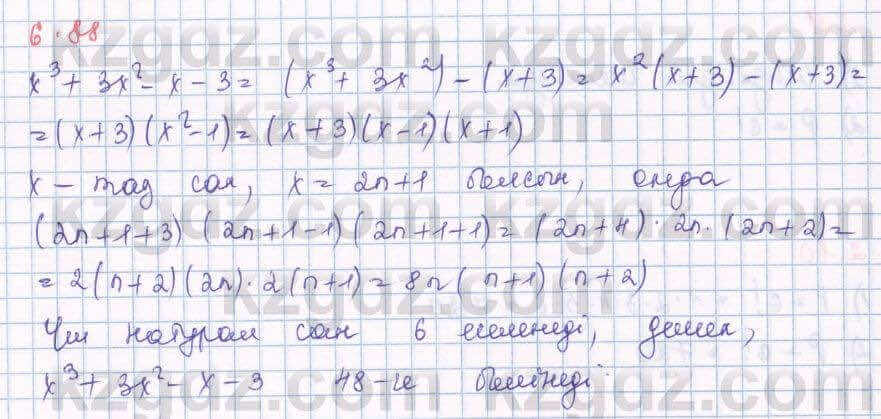 6.88
x³ + 3x² - x - 3 = (x³ + 3x²) - (x + 3) = x² (x + 3) - (x + 3) =
= (x + 3) (x² - 1) = (x + 3) (x - 1) (x + 1)
x - тақ сан, x = 2n + 1 болсын, онда
(2n + 1 + 3) (2n + 1 - 1) (2n + 1 + 1) = (2n + 4) · 2n · (2n + 2) =
= 2 (n + 2) (2n) · 2 (n + 1) = 8n (n + 1) (n + 2)
Үш натурал сан 6 еселенеді, демек,
x³ + 3x² - x - 3 48-ге бөлінеді
kzgdz.com